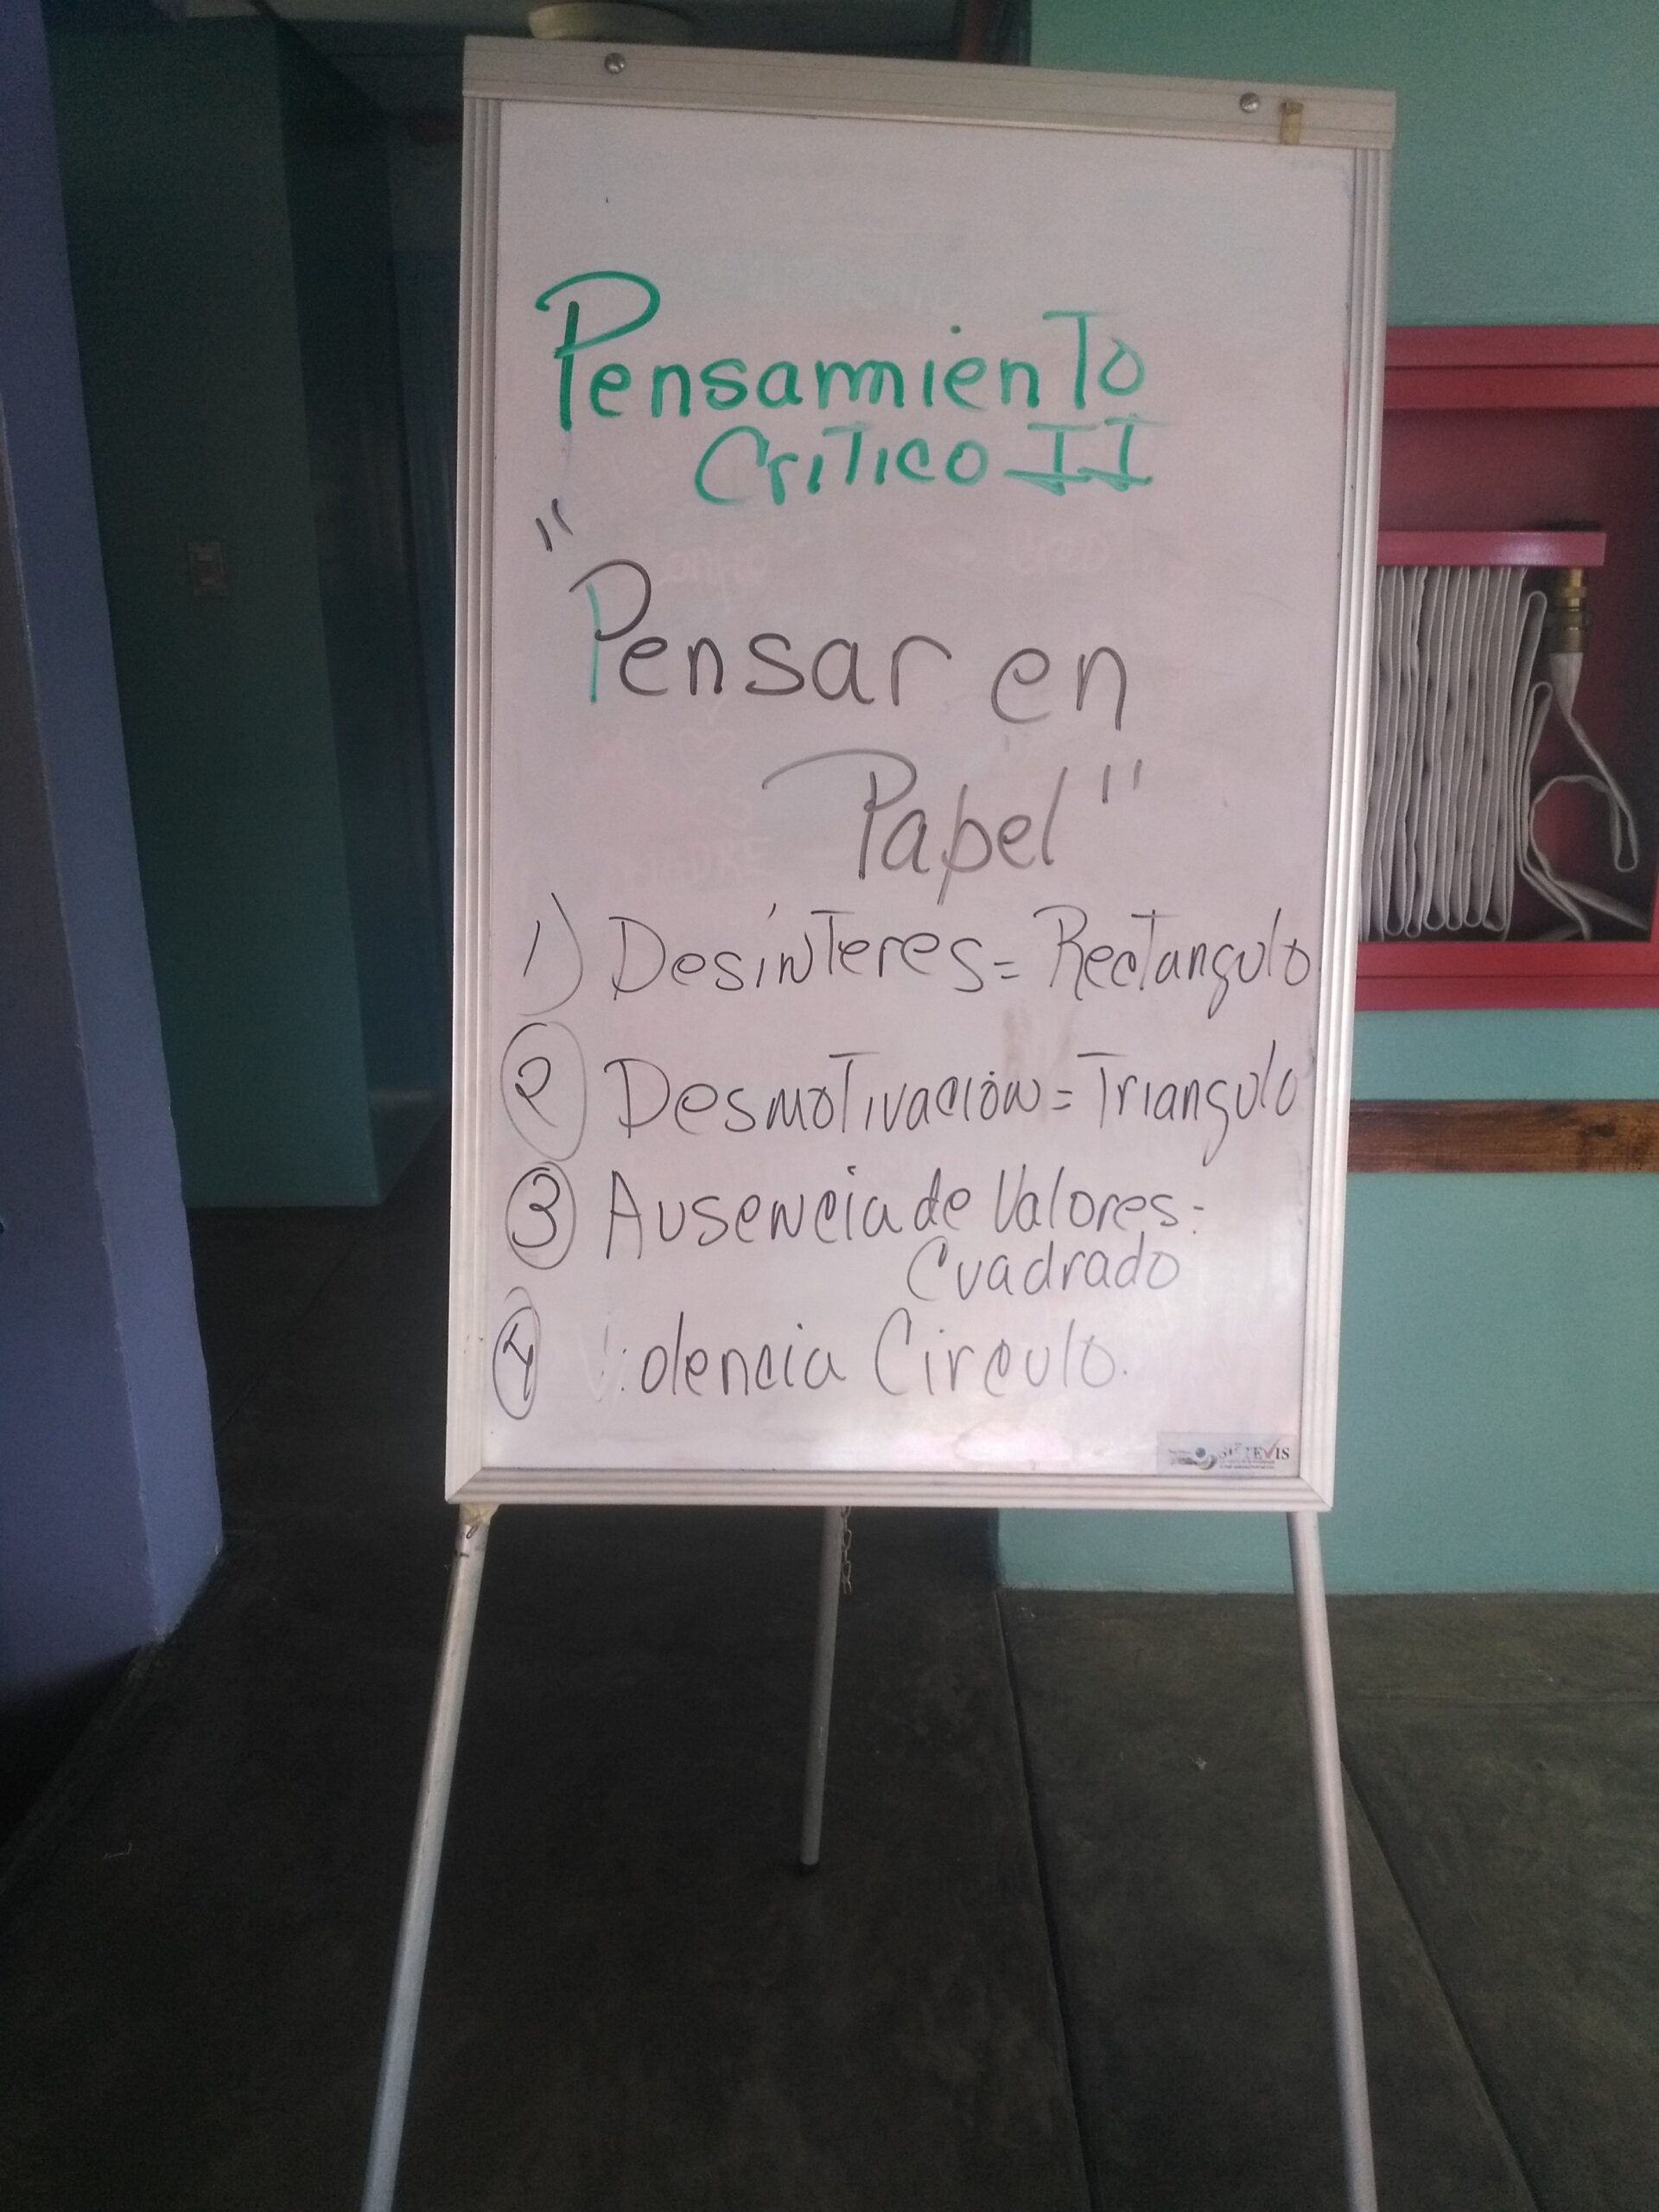 Pensamiento
Critico II
"Pensar en
Papel"
1) Desínteres = Rectangulo
2 Desmotivación = Triangulo
3 Ausencia de Valores =
Cuadrado
4 Violencia Circulo.